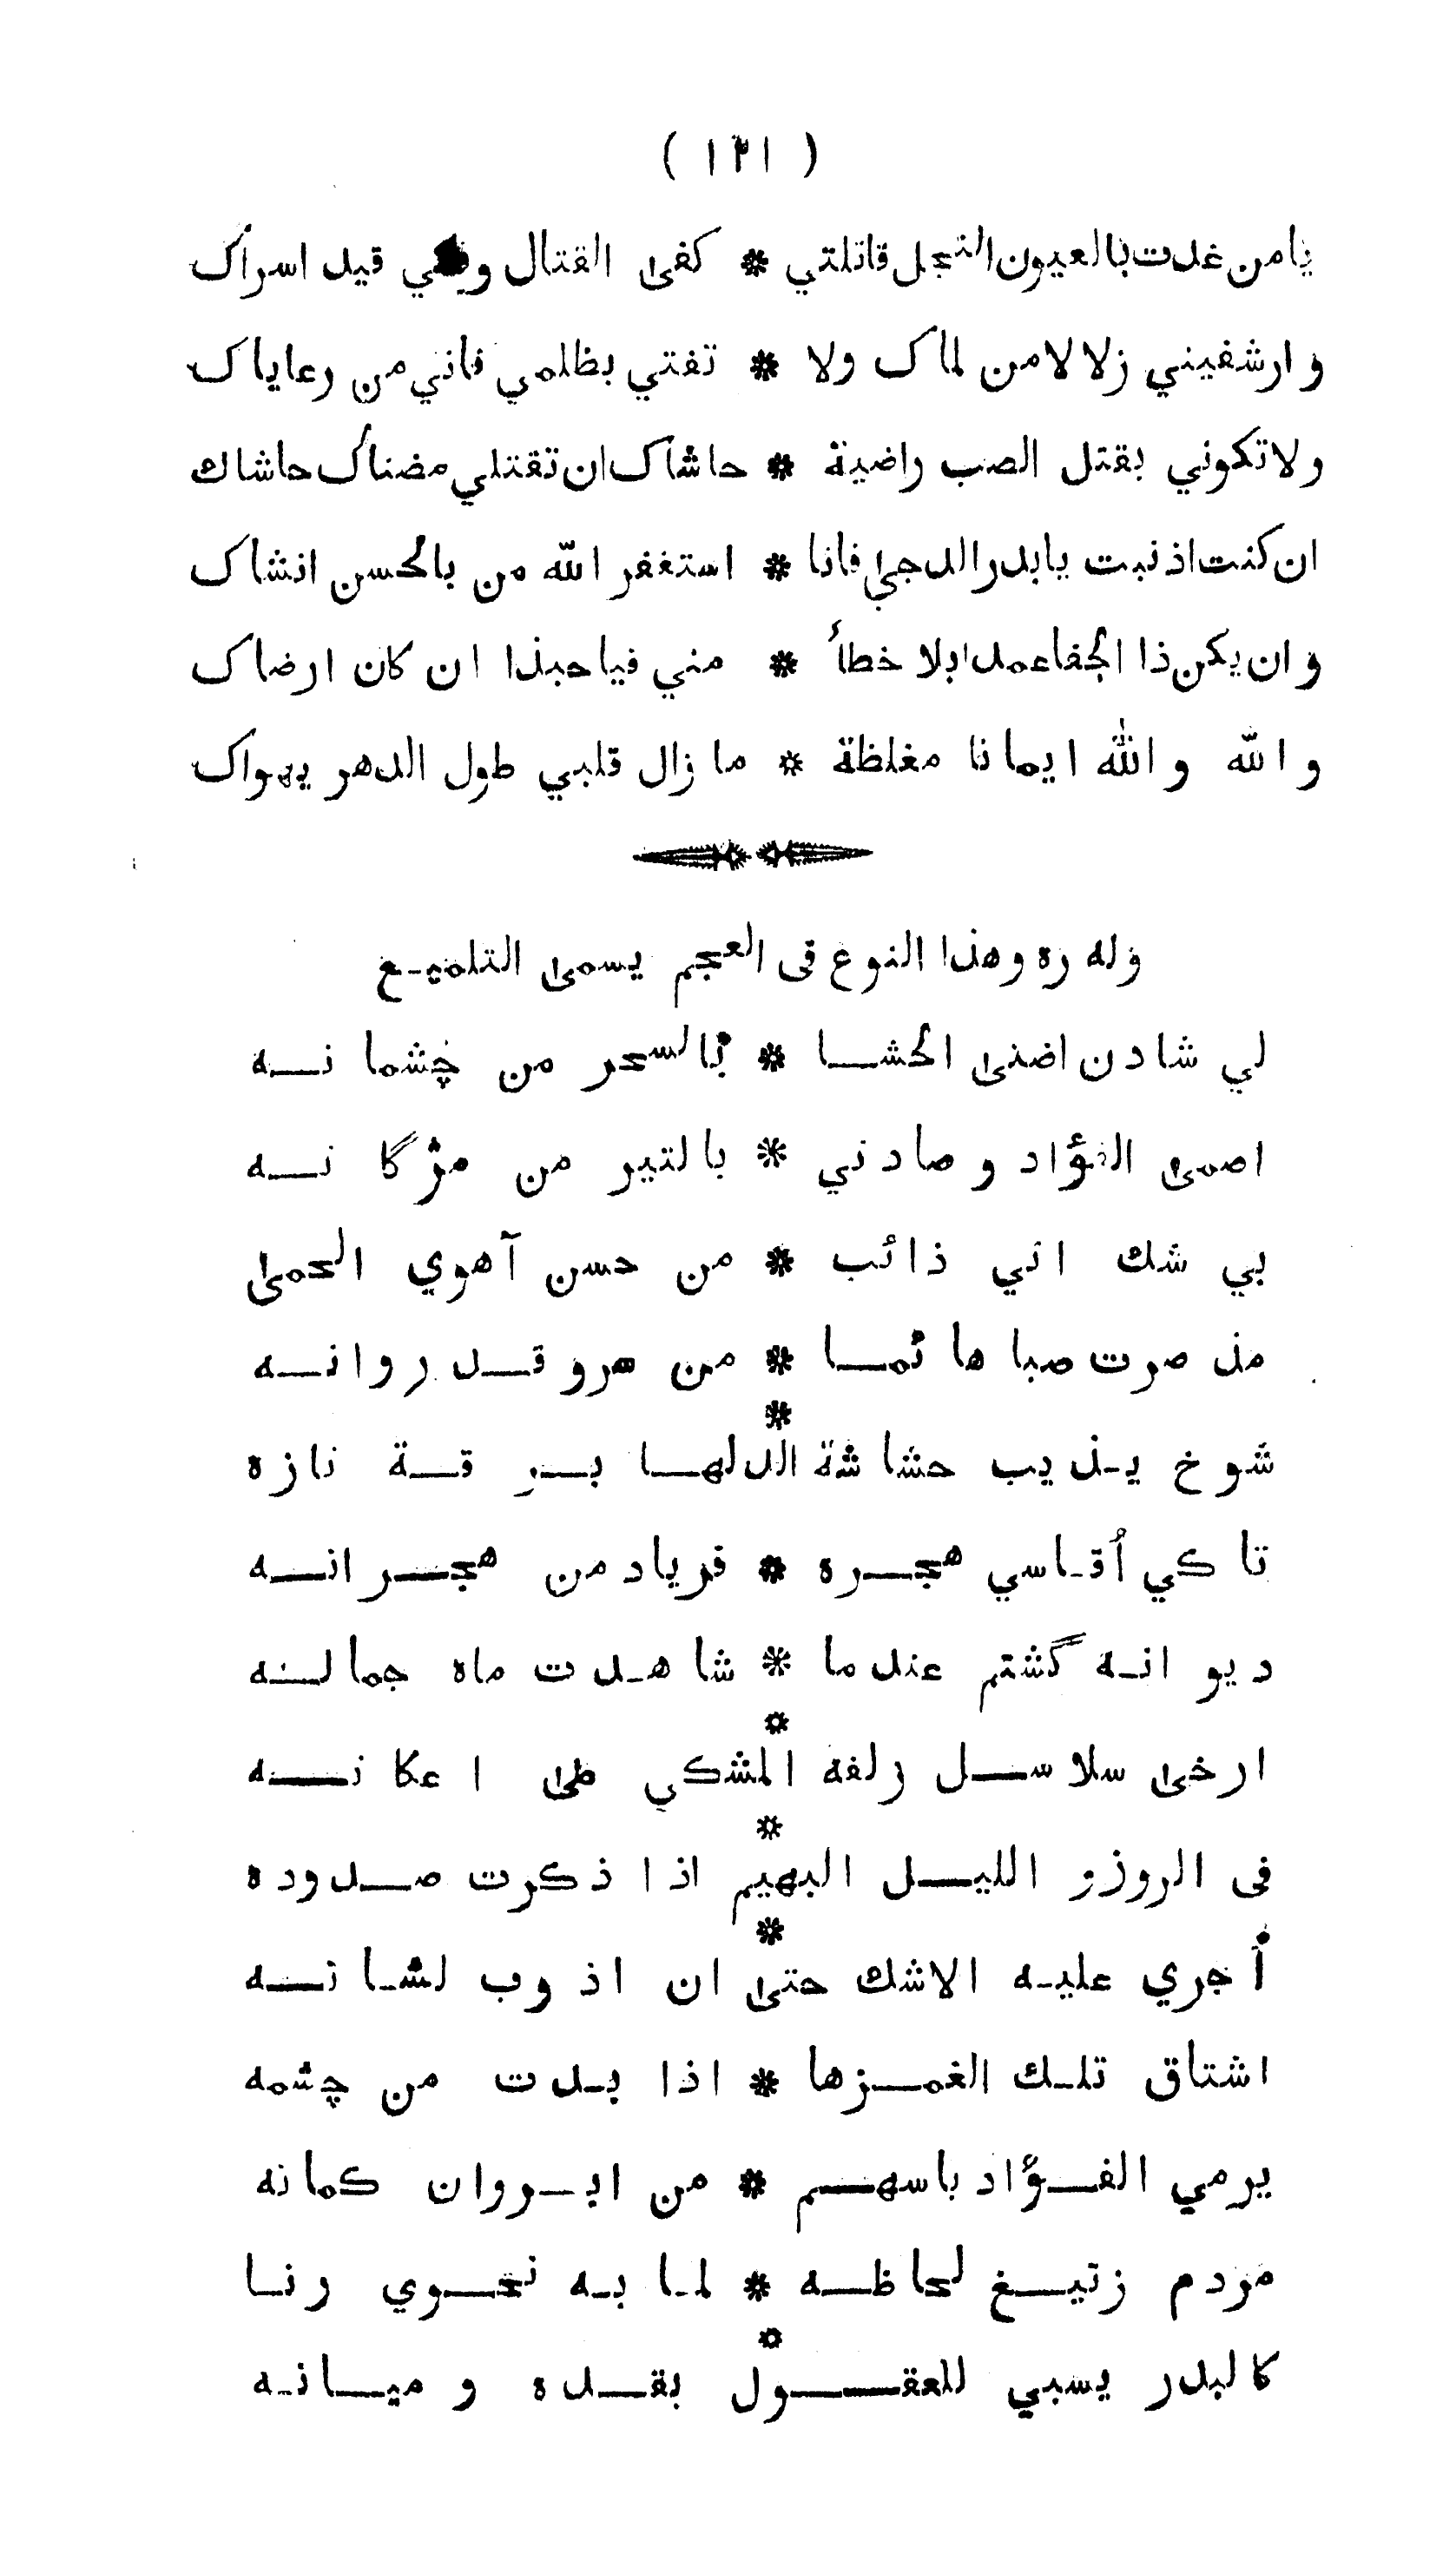 ( ١٢١ )
يامن غدت بالعيون النجل قاتلتي * كفى القتال وفكي قيد اسراك
وارشفيني زلالا من لماك ولا * تفتي بظلمي فاني من رعاياك
ولا تكوني بقتل الصب راضية * حاشاك ان تقتلي مضناك حاشاك
ان كنت اذنبت يابدر الدجى فانا * استغفر الله من بالحسن انشاك
وان يكن ذا الجفا عمدا بلا خطأ * مني فيا حبذا ان كان ارضاك
والله والله ايمانا مغلظة * ما زال قلبي طول الدهر يهواك
وله ره وهذا النوع فى العجم يسمى التلميع
لي شادن اضنى الحشا * بالسحر من چشمانه
اصمى الفؤاد وصادني * بالتير من مژگانه
بي شك اني ذائب * من حسن آهوي الحمى
مذ صرت صبا هائما * من سرو قد روانه
*
شوخ يذيب حشاشة الدلها برقة نازه
تا كي أقاسي هجره * فرياد من هجرانه
ديوانه گشتم عندما * شاهدت ماه جماله
*
ارخى سلاسل زلفه المشكي على اعكانه
*
فى الروز و الليل البهيم اذا ذكرت صدوده
*
أجري عليه الاشك حتى ان اذوب لشانه
اشتاق تلك الغمزها * اذا بدت من چشمه
يرمي الفؤاد باسهم * من ابروان كمانه
مردم زتيغ لحاظه * لما به نحوي رنا
*
كالبدر يسبي للعقول بقده و ميانه